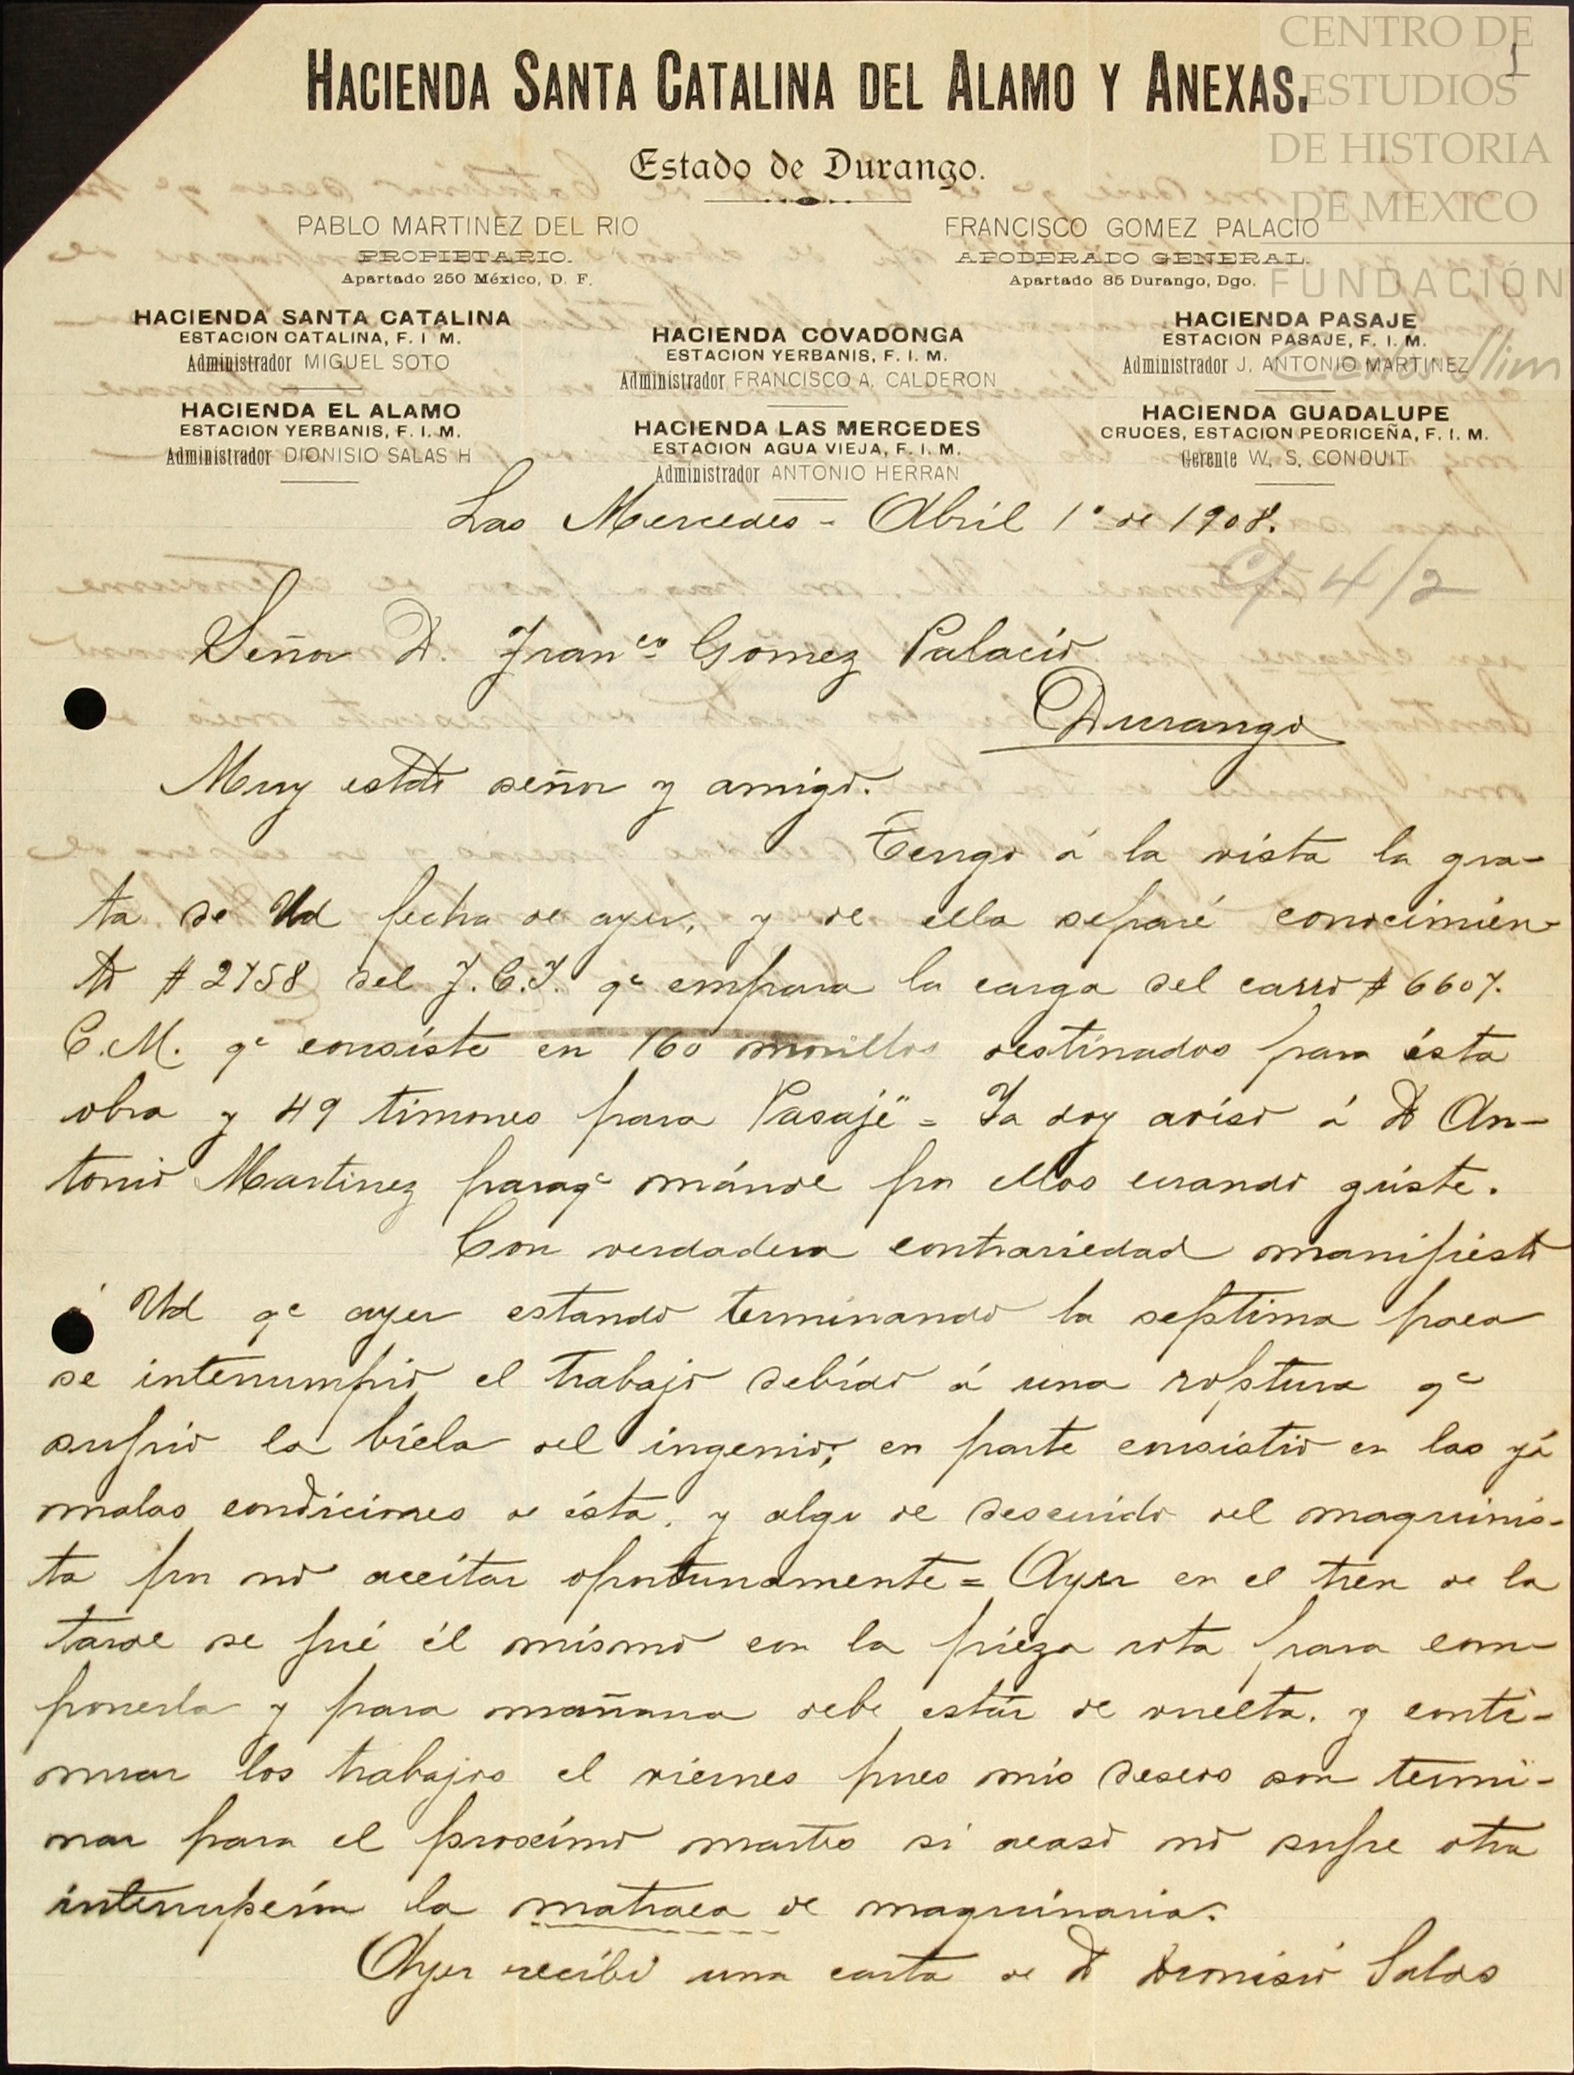 CENTRO DE
ESTUDIOS
DE HISTORIA
DE MEXICO
FUNDACIÓN
Carlos Slim
1
HACIENDA SANTA CATALINA DEL ALAMO Y ANEXAS.
Estado de Durango.
PABLO MARTINEZ DEL RIO
PROPIETARIO.
Apartado 250 México, D. F.
FRANCISCO GOMEZ PALACIO
APODERADO GENERAL.
Apartado 85 Durango, Dgo.
HACIENDA SANTA CATALINA
ESTACION CATALINA, F. I M.
Administrador MIGUEL SOTO
HACIENDA EL ALAMO
ESTACION YERBANIS, F. I. M.
Administrador DIONISIO SALAS H
HACIENDA COVADONGA
ESTACION YERBANIS, F. I. M.
Administrador FRANCISCO A. CALDERON
HACIENDA LAS MERCEDES
ESTACION AGUA VIEJA, F. I. M.
Administrador ANTONIO HERRAN
HACIENDA PASAJE
ESTACION PASAJE, F. I. M.
Administrador J. ANTONIO MARTINEZ
HACIENDA GUADALUPE
CRUCES, ESTACION PEDRICEÑA, F. I. M.
Gerente W. S. CONDUIT
Las Mercedes - Abril 1º de 1908.
4/2
Señor D. Franco Gomez Palacio
Durango
Muy estdo señor y amigo.
Tengo á la vista la gra-
ta de Ud fecha de ayer, y de ella separé conocimien-
to # 2758 del F.C.I. qe ampara la carga del carro # 6607.
C.M. qe consiste en 160 morillos destinados para ésta
obra y 49 timones para Pasaje" = Ya doy aviso á D An-
tonio Martinez paraqe mánde por ellos cuando guste.
Con verdadera contrariedad manifiesto
á Ud qe ayer estando terminando la septima paca
se interrumpio el trabajo debido á una roptura qe
sufrio la biela del ingenio; en parte consistio en las yá
malas condiciones de ésta, y algo de descuido del maquinis-
ta por no aceitar oportunamente = Ayer en el tren de la
tarde se fué él mismo con la pieza rota para com-
ponerla y para mañana debe estár de vuelta. y conti-
nuar los trabajos el viernes pues mis deseos son termi-
nar para el proximo martes si acaso no sufre otra
interrupcion la matraca de maquinaria.
Ayer recibi una carta de D Dionisio Salas